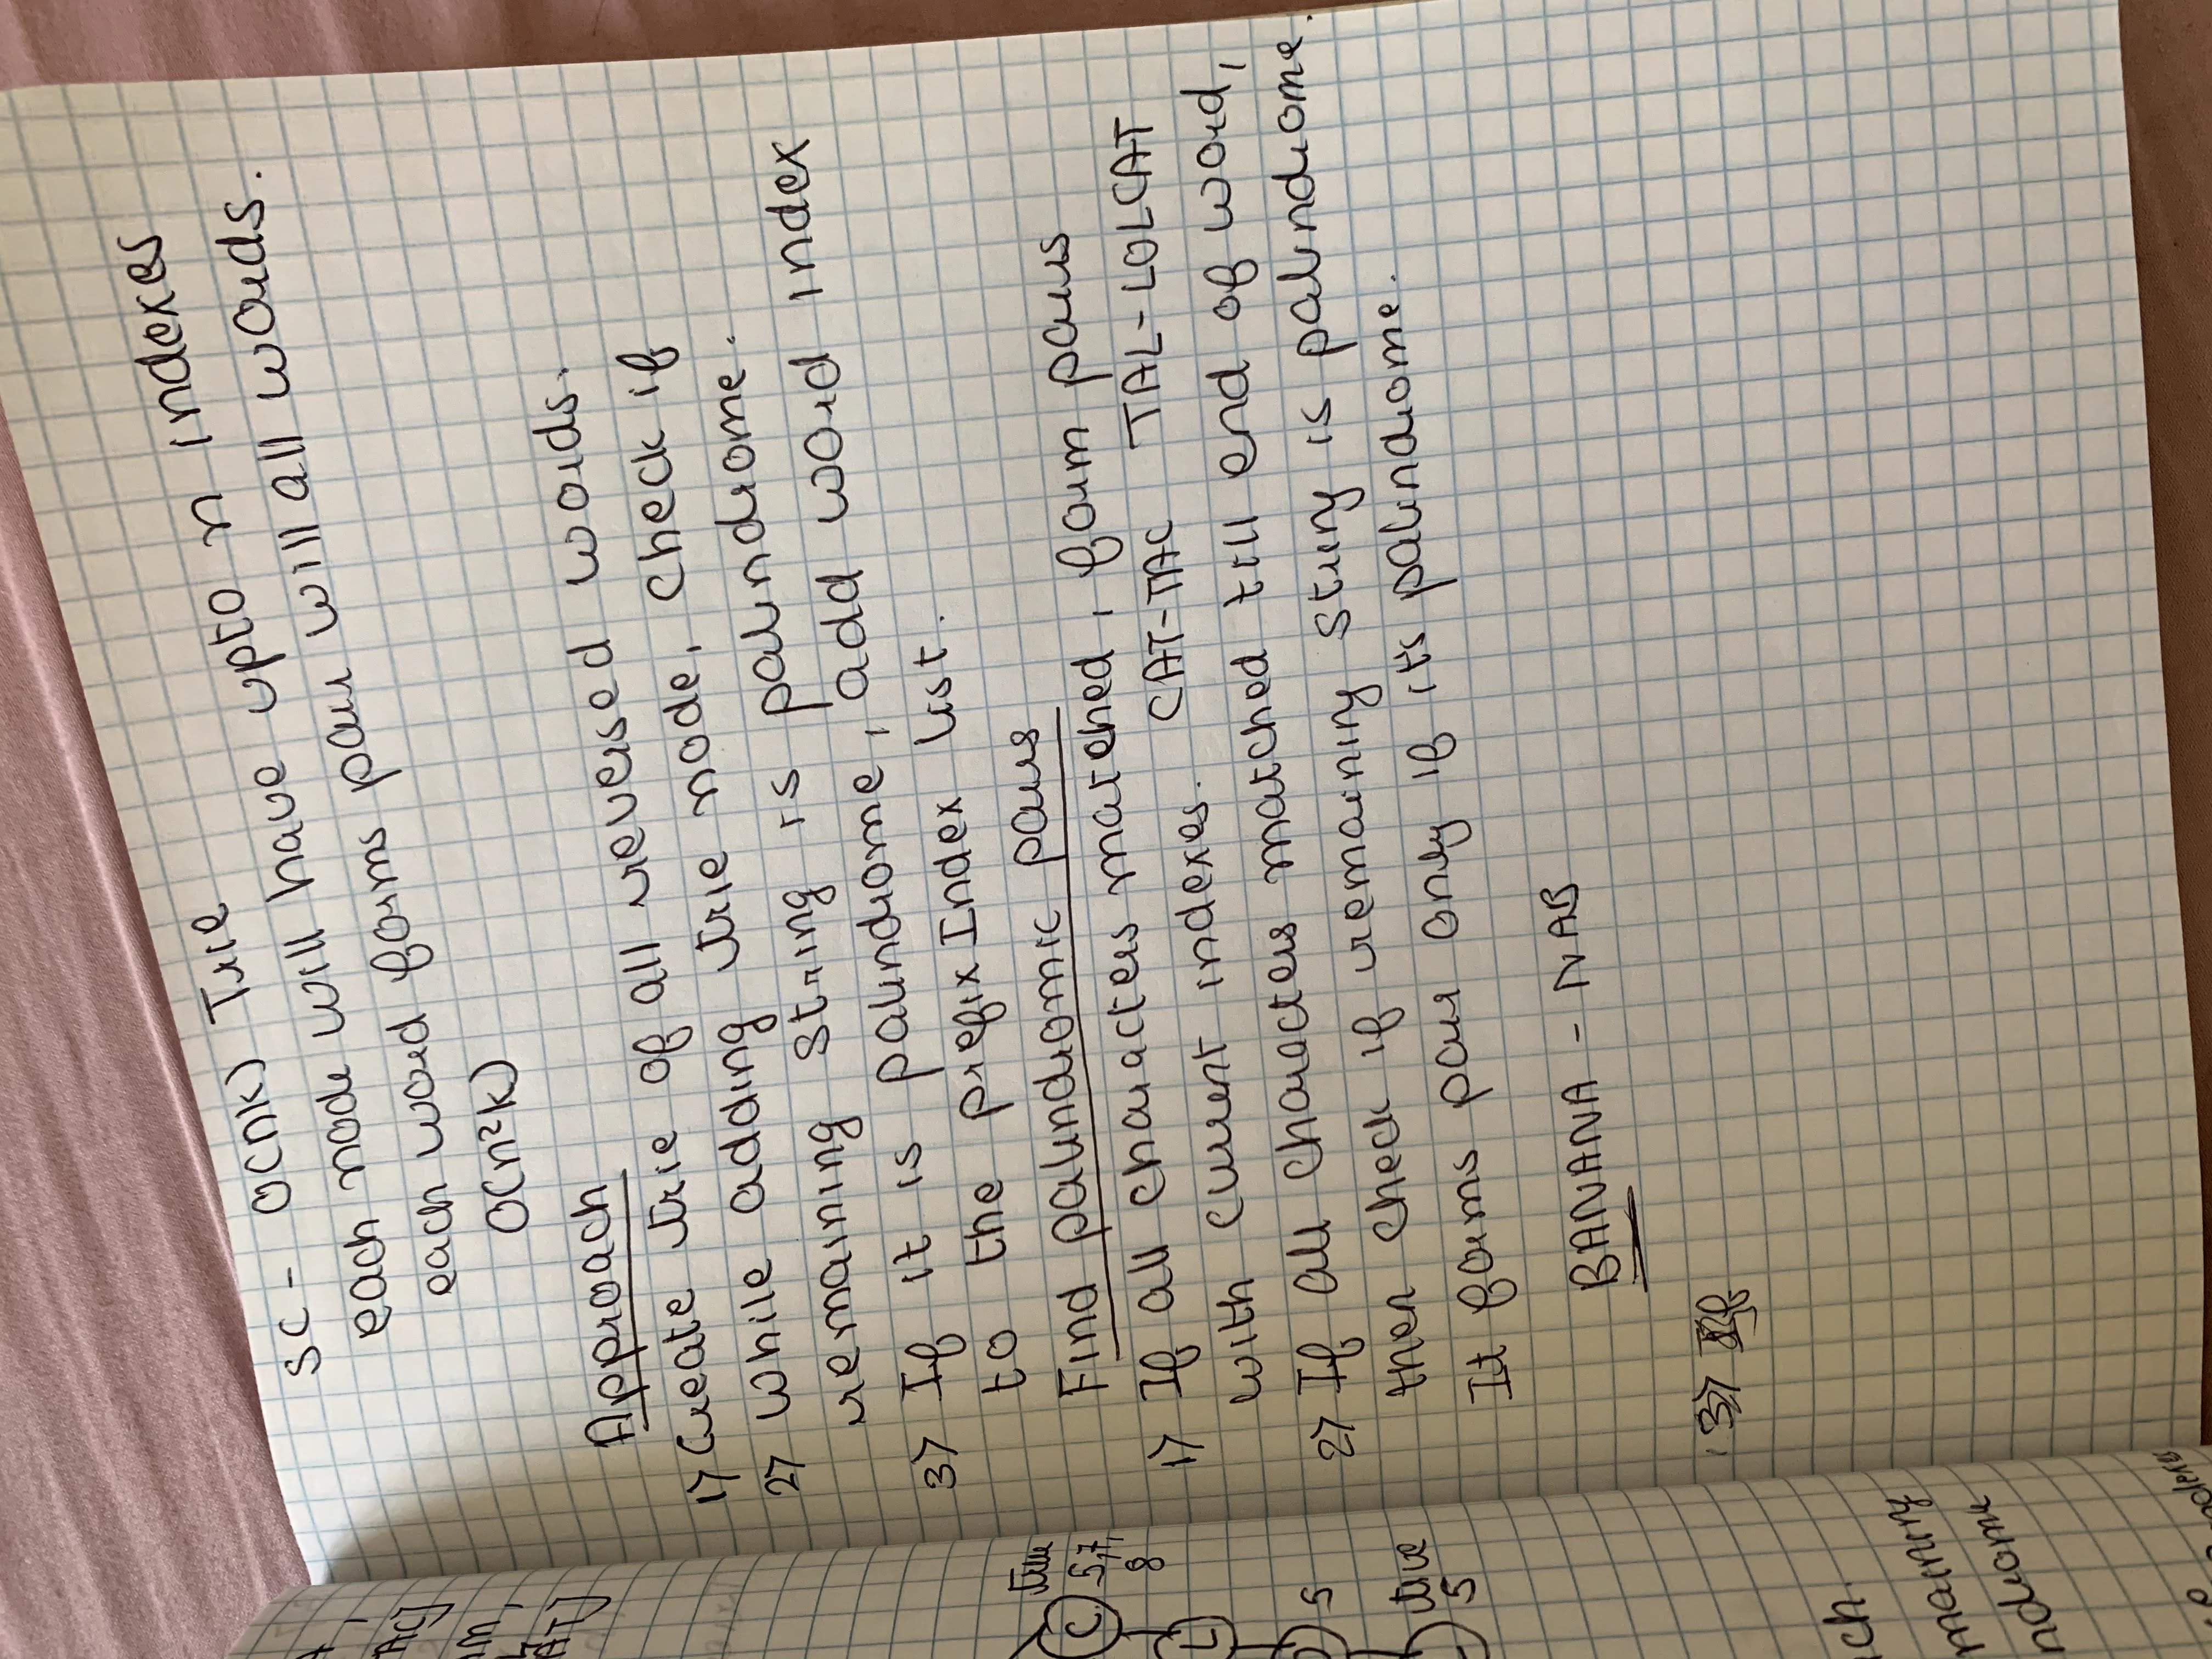 SC - O(nk) Trie
each node will have upto n indexes
each word forms pair will all words.
O(n²k)
Approach
1) Create trie of all reversed words.
2) While adding trie node, check if
remaining string is palindrome.
3) If it is palindrome, add word index
to the prefixIndex list.
Find palindromic pairs
1) If all characters matched, form pairs
with current indexes. CAT-TAC TAL-LOLCAT
2) If all characters matched till end of word,
then check if remaining string is palindrome.
It forms pair only if it's palindrome.
BANANA - NAB
3) If
AC]
AT]
true
C 5,7,
8
L
5
true
5
ch.
maining
ndrome
indexes